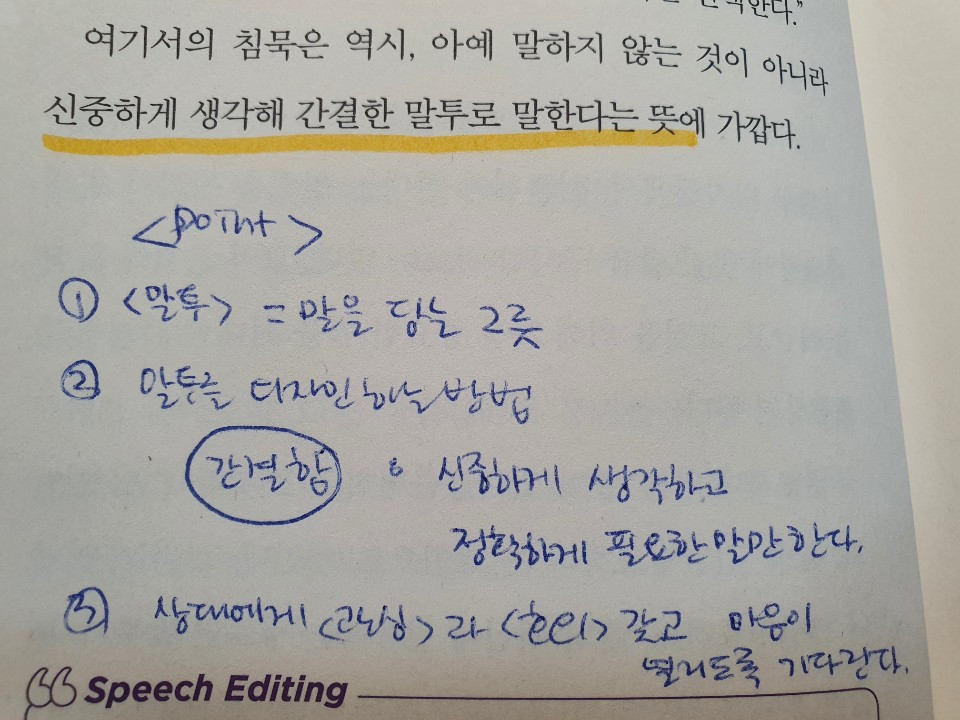 한다."
여기서의 침묵은 역시, 아예 말하지 않는 것이 아니라
신중하게 생각해 간결한 말투로 말한다는 뜻에 가깝다.
<point>
① <말투> = 말을 담는 그릇
② 말투를 디자인하는 방법
간결함 : 신중하게 생각하고
정확하게 필요한 말만 한다.
③ 상대에게 <관심>과 <호의> 갖고 마음이
열리도록 기다린다.
Speech Editing